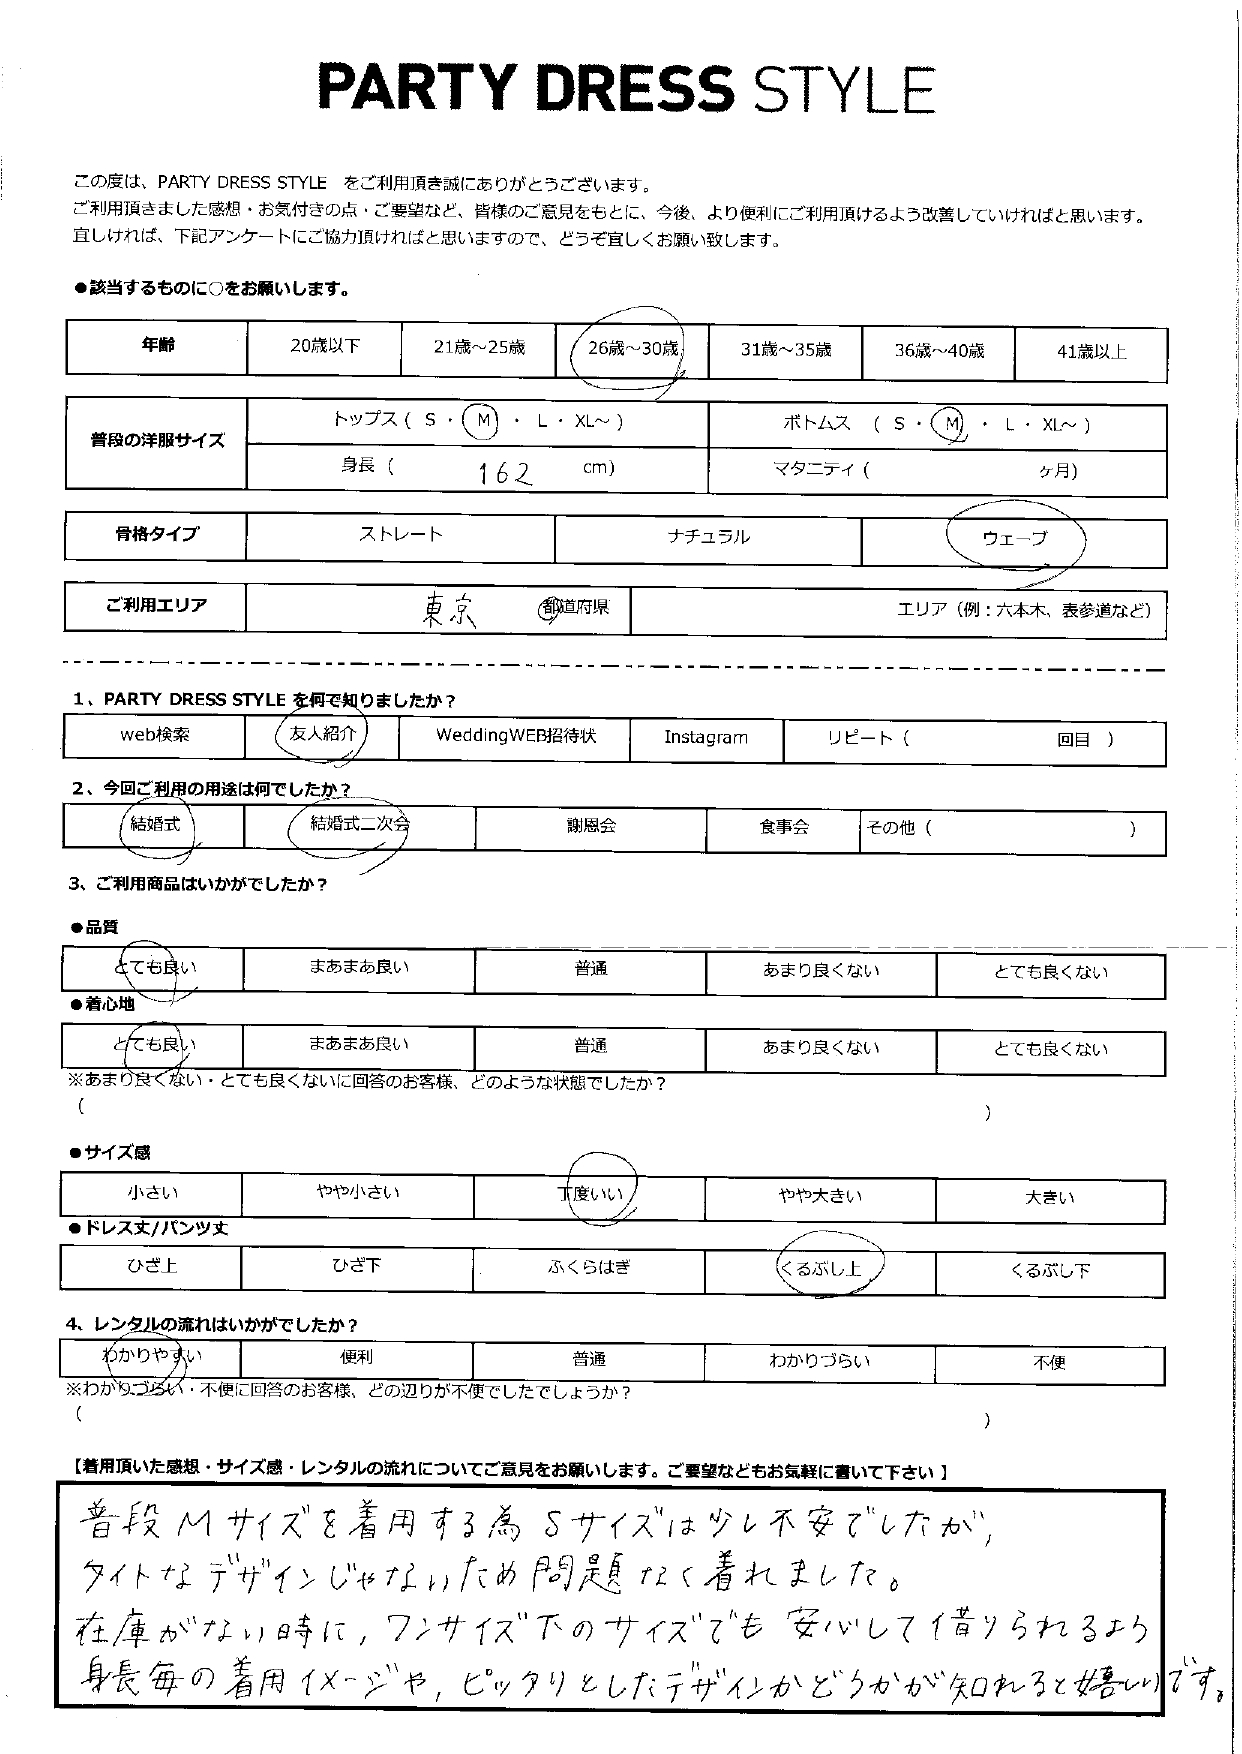 PARTY DRESS STYLE
この度は、PARTY DRESS STYLE をご利用頂き誠にありがとうございます。
ご利用頂きました感想・お気付きの点・ご要望など、皆様のご意見をもとに、今後、より便利にご利用頂けるよう改善していければと思います。
宜しければ、下記アンケートにご協力頂ければと思いますので、どうぞ宜しくお願い致します。
●該当するものに○をお願いします。
年齢 20歳以下 21歳～25歳 26歳～30歳 31歳～35歳 36歳～40歳 41歳以上
普段の洋服サイズ トップス ( S ・ M ・ L ・ XL～ ) ボトムス ( S ・ M ・ L ・ XL～ )
身長 ( 162 cm) マタニティ ( ヶ月)
骨格タイプ ストレート ナチュラル ウェーブ
ご利用エリア 東京 都道府県 エリア（例：六本木、表参道など）
1、PARTY DRESS STYLE を何で知りましたか？
web検索 友人紹介 WeddingWEB招待状 Instagram リピート ( 回目 )
2、今回ご利用の用途は何でしたか？
結婚式 結婚式二次会 謝恩会 食事会 その他 ( )
3、ご利用商品はいかがでしたか？
●品質
とても良い まあまあ良い 普通 あまり良くない とても良くない
●着心地
とても良い まあまあ良い 普通 あまり良くない とても良くない
※あまり良くない・とても良くないに回答のお客様、どのような状態でしたか？
( )
●サイズ感
小さい やや小さい 丁度いい やや大きい 大きい
●ドレス丈/パンツ丈
ひざ上 ひざ下 ふくらはぎ くるぶし上 くるぶし下
4、レンタルの流れはいかがでしたか？
わかりやすい 便利 普通 わかりづらい 不便
※わかりづらい・不便に回答のお客様、どの辺りが不便でしたでしょうか？
( )
【着用頂いた感想・サイズ感・レンタルの流れについてご意見をお願いします。ご要望などもお気軽に書いて下さい 】
普段Mサイズを着用する為Sサイズは少し不安でしたが,
タイトなデザインじゃないため問題なく着れました。
在庫がない時に,ワンサイズ下のサイズでも安心して借りられるよう
身長毎の着用イメージや,ピッタリとしたデザインかどうかが知れると嬉しいです。